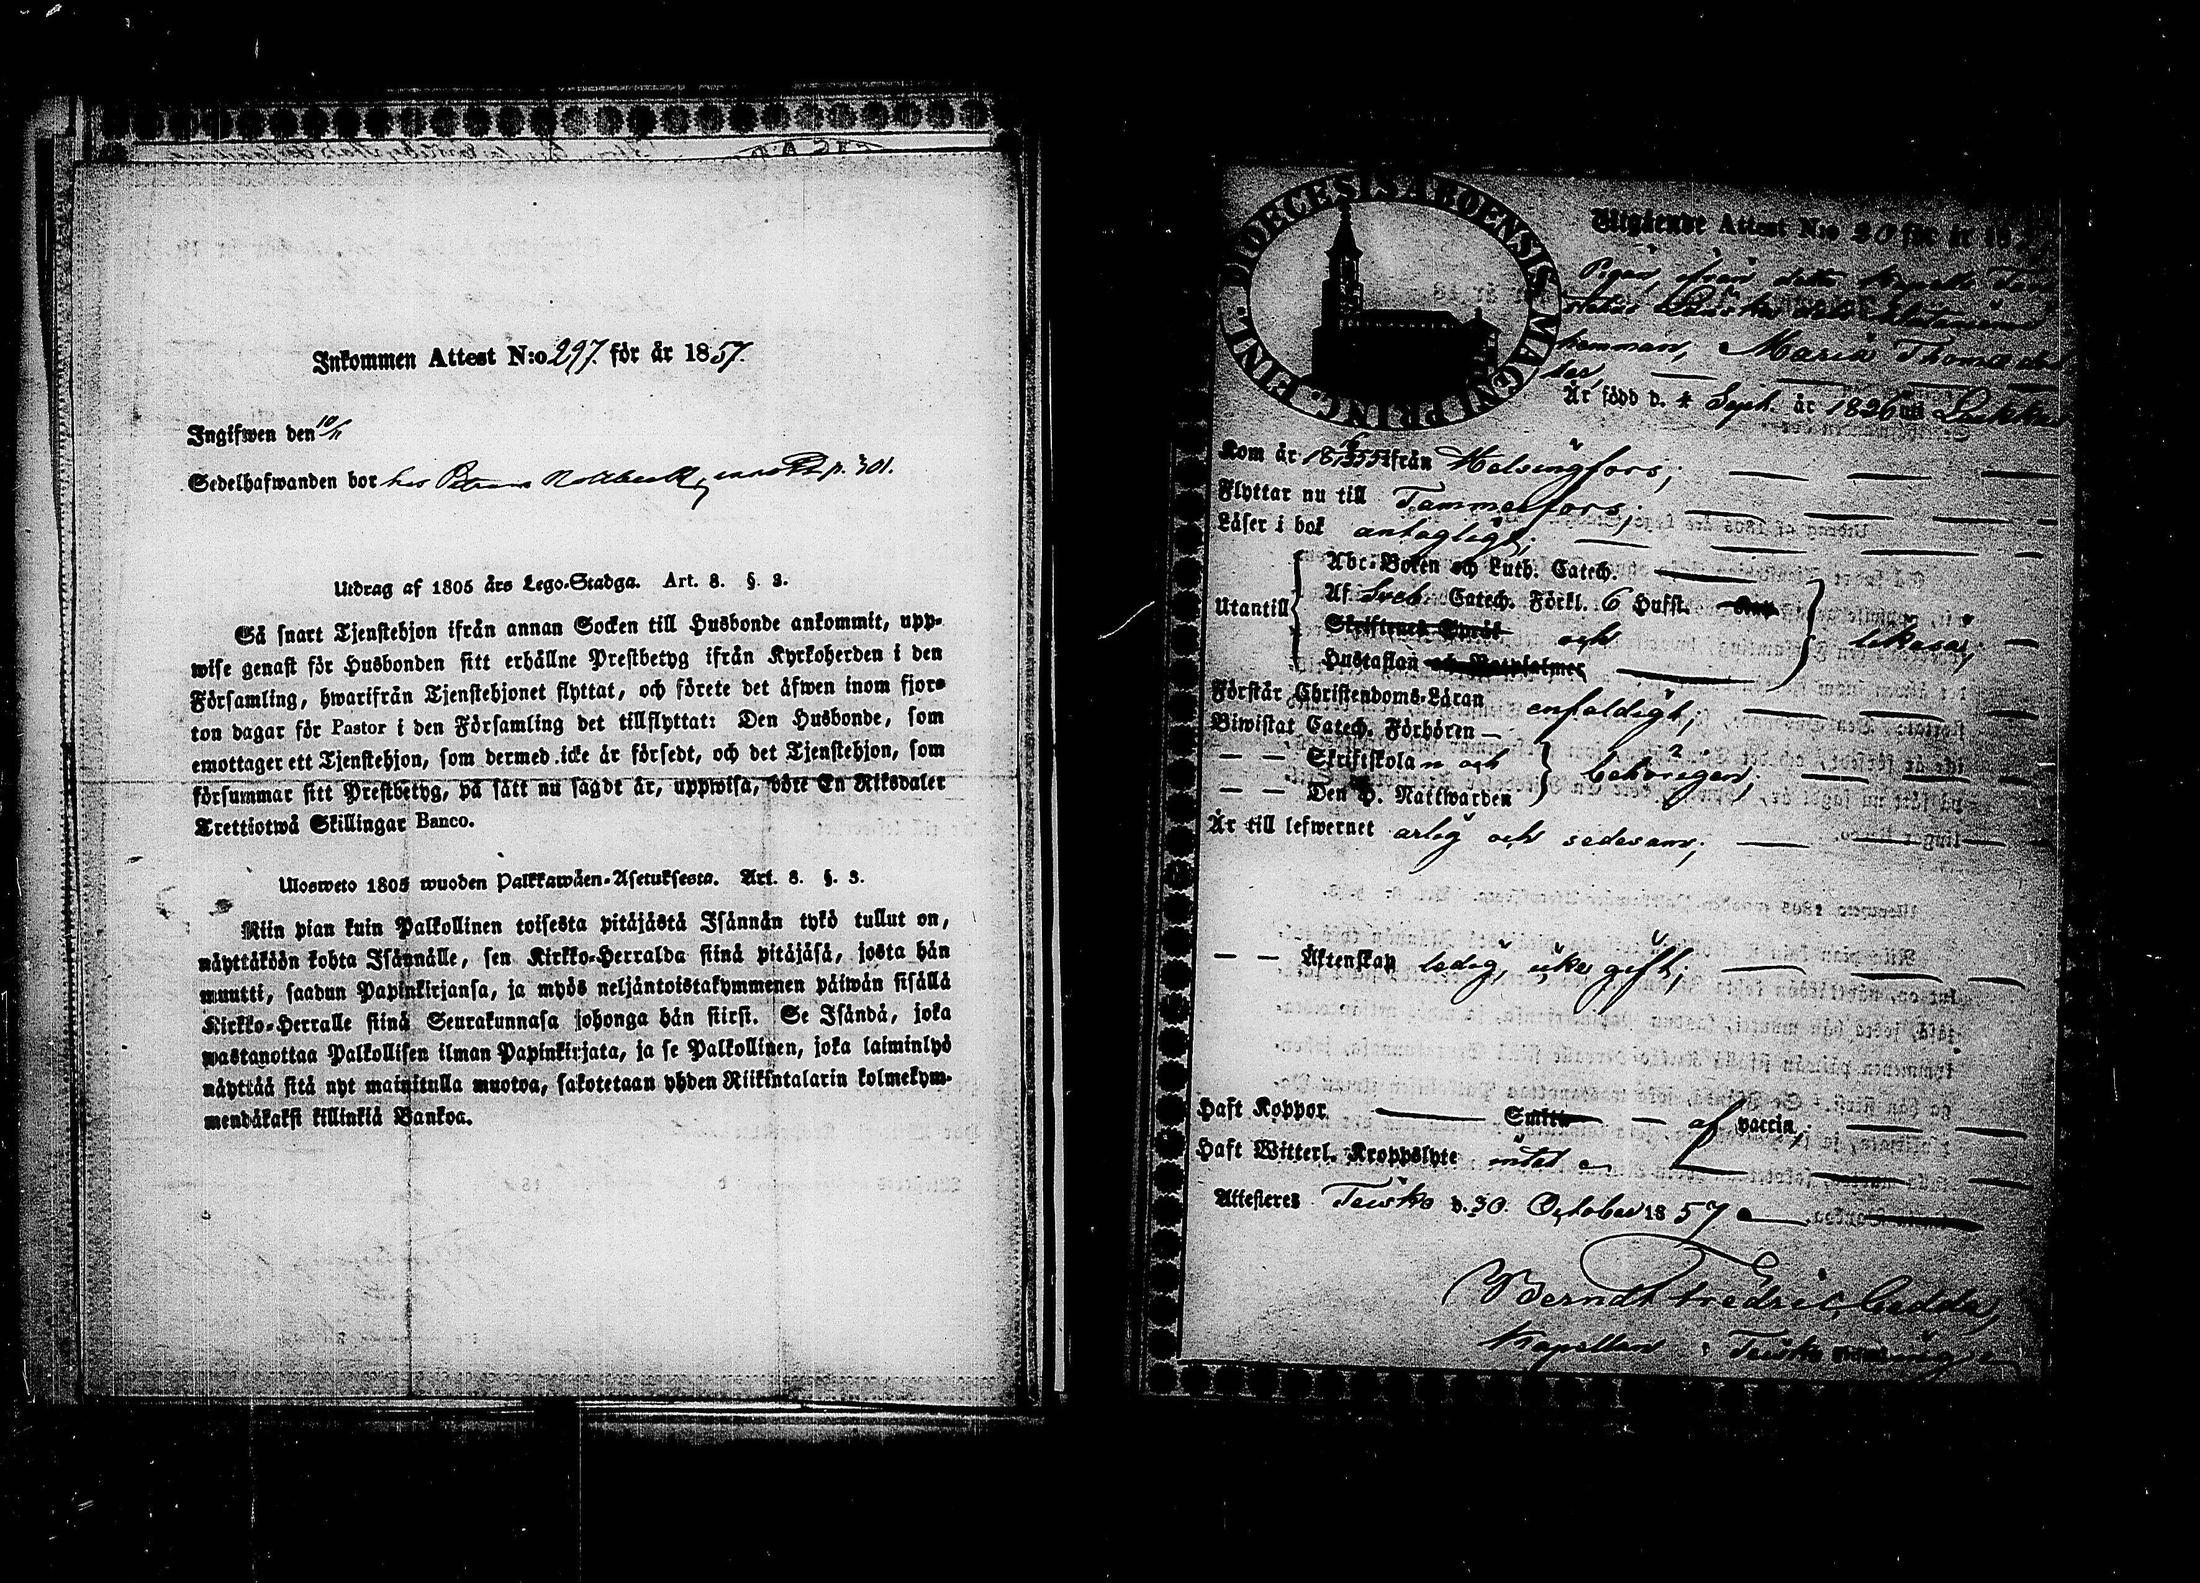 Inkommen Attest N:o 297. för år 1857.
Ingifwen den 10/11
Sedelhafwanden bor hos p. 301.
Utdrag af 1805 års Lego-Stadga. Art. 8. §. 3.
Så snart Tjenstehjon ifrån annan Socken till Husbonde ankommit, upp-
wise genast för Husbonden sitt erhållne Prestbetyg ifrån Kyrkoherden i den
Församling, hwarifrån Tjenstehjonet flyttat, och förete det äfwen inom fjor-
ton dagar för Pastor i den Församling det tillflyttat: Den Husbonde, som
emottager ett Tjenstehjon, som dermed icke är försedt, och det Tjenstehjon, som
försummar sitt Prestbetyg, på sätt nu sagdt är, uppwisa, böte En Riksdaler
Trettiotwå Skillingar Banco.
Ulosweto 1805 wuoden Palkkawäen-Asetuksesta. Art. 8. §. 3.
Niin pian kuin Palkollinen toisesta pitäjästä Isännän tykö tullut on,
näyttäköön kohta Isännälle, sen Kirkko-Herralda siinä pitäjäsä, josta hän
muutti, saadun Papinkirjansa, ja myös neljäntoistakymmenen päiwän sisällä
Kirkko-Herralle siinä Seurakunnasa johonga hän siirsi. Se Isändä, joka
wastanottaa Palkollisen ilman Papinkirjata, ja se Palkollinen, joka laiminlyö
näyttää sitä nyt mainitulla muotoa, sakotetaan yhden Riikintalarin kolmekym-
mendäkaksi killinkiä Bankoa.
DIOECESIS ABOENSIS MAGNI PRINC. FINL.
Utgående Attest N:o 20 för år 18
Pigan, ifrån detta Kapells
hemman, Maria Thomasdot
ter,
Är född d. 4 Sept. år 1826 uti
Kom år 1855 ifrån Helsingfors;
Flyttar nu till Tammerfors;
Läser i bok antagligt;
Abc-Boken och Luth. Catech.
Utantill Af Sveb. Catech. Förkl. 6 Hufst.
Skriftenes Språk och likaså;
Hustaflan och Botpsalmer
Förstår Christendoms-Läran enfaldigt;
Biwistat Catech. Förhören
— — Skriftskolan och behörigen;
— — Den H. Nattwarden
Är till lefwernet ärlig och sedesam;
— — Äktenskap ledig, icke gift;
Haft Koppor Smitt af vaccin;
Haft Witterl. Kroppslyte intet
Attesteres Teisko d. 30. October 1857
Berndt Fredric Gadda,
Kapellan i Teisko